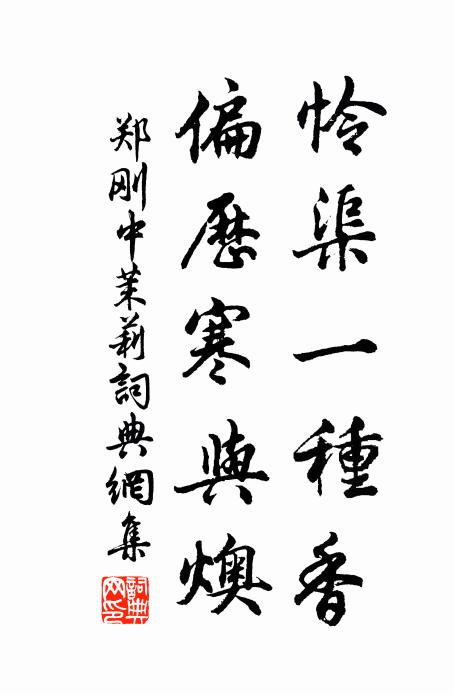 怜渠一種香
偏歷寒與燠
郑刚中茉莉詞典網集
詞典網印